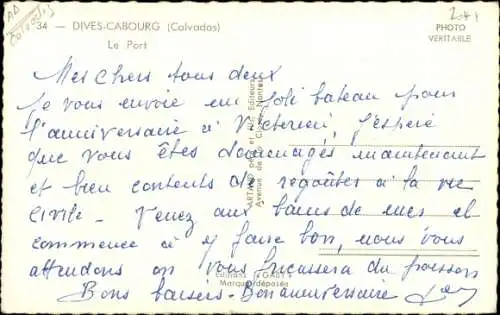 34 — DIVES-CABOURG (Calvados)
Le Port
PHOTO
VERITABLE
Mes chers tous deux
Je vous envoie un joli bateau pour
l'anniversaire à Victorien, j'espère
que vous êtes démenagés maintenant
et bien contents de regoûter à la vie
civile - Venez aux bains de mer et
commence à y faire bon, nous vous
attendons on vous fricassera du poisson
Bons baisers - Bon anniversaire
Editions "GABY"
Marque déposée